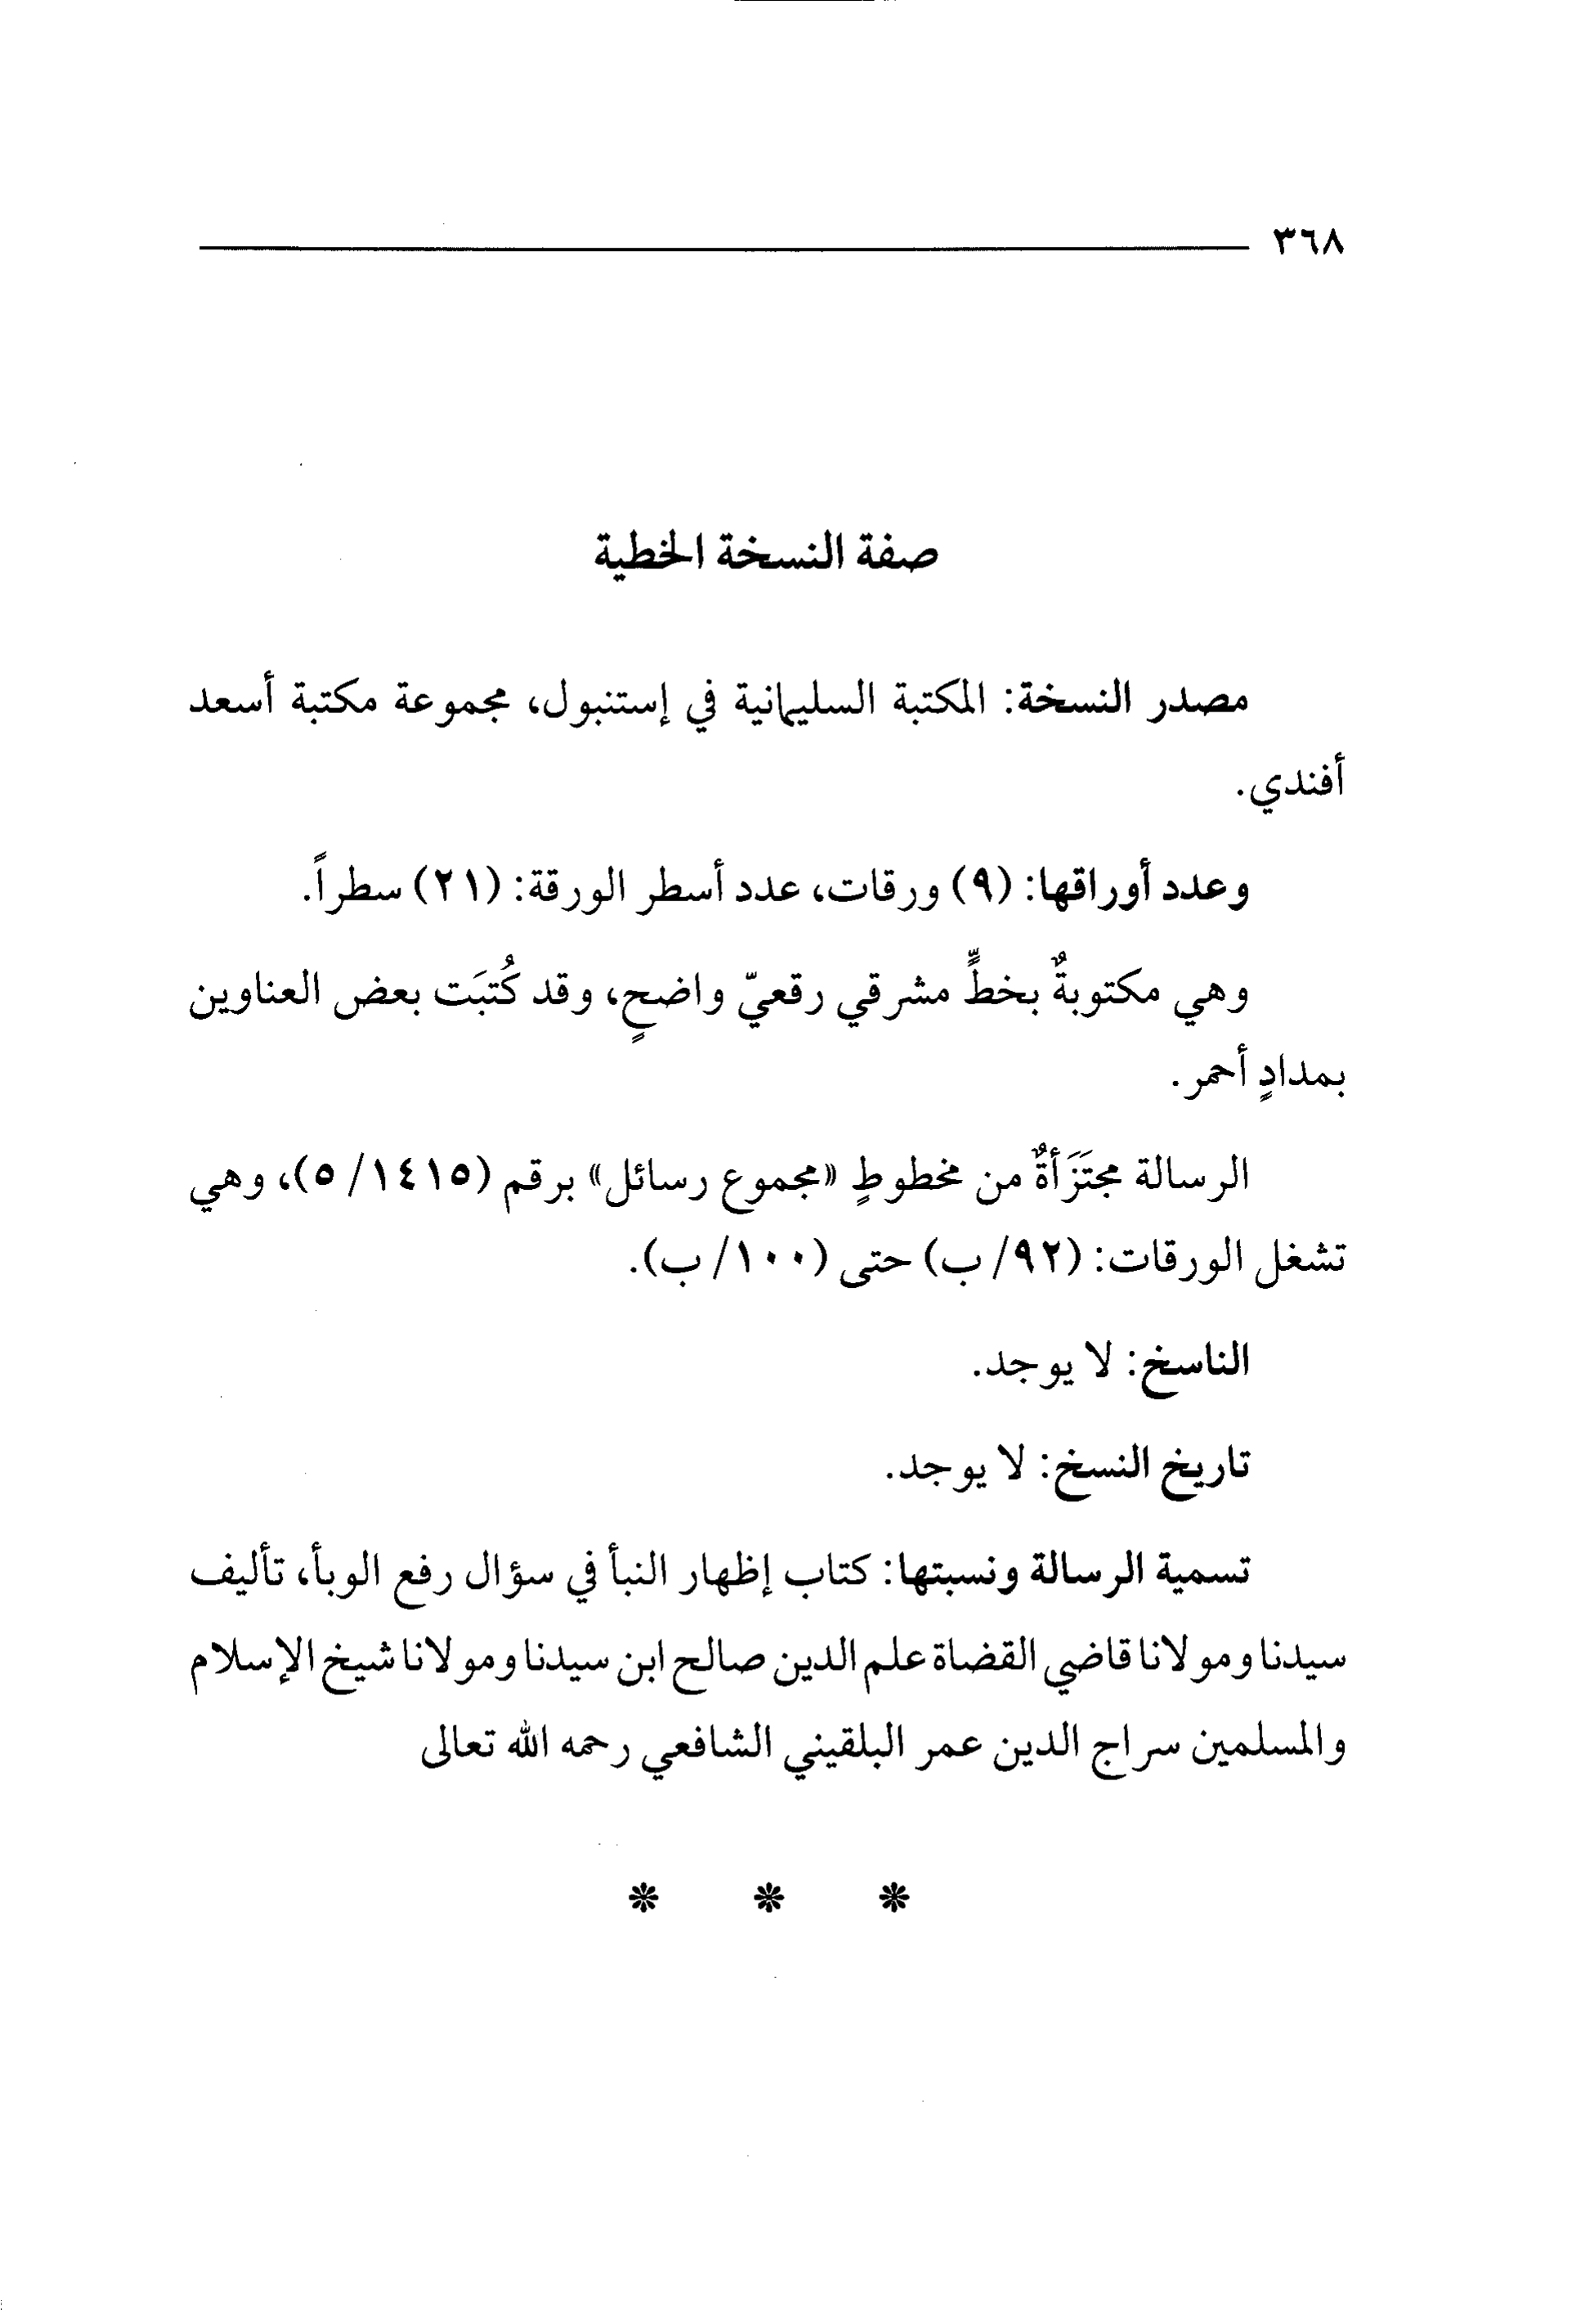 ٣٦٨
صفة النسخة الخطية
مصدر النسخة: المكتبة السليمانية في إستنبول، مجموعة مكتبة أسعد
أفندي.
وعدد أوراقها: (٩) ورقات، عدد أسطر الورقة: (٢١) سطراً.
وهي مكتوبةٌ بخطٍّ مشرقي رقعيّ واضحٍ، وقد كُتبَت بعض العناوين
بمدادٍ أحمر.
الرسالة مجتَزَأةٌ من مخطوطٍ «مجموع رسائل» برقم (١٤١٥/ ٥)، وهي
تشغل الورقات: (٩٢/ ب) حتى (١٠٠/ ب).
الناسخ: لا يوجد.
تاريخ النسخ: لا يوجد.
تسمية الرسالة ونسبتها: كتاب إظهار النبأ في سؤال رفع الوبأ، تأليف
سيدنا ومولانا قاضي القضاة علم الدين صالح ابن سيدنا ومولانا شيخ الإسلام
والمسلمين سراج الدين عمر البلقيني الشافعي رحمه الله تعالى
* * *